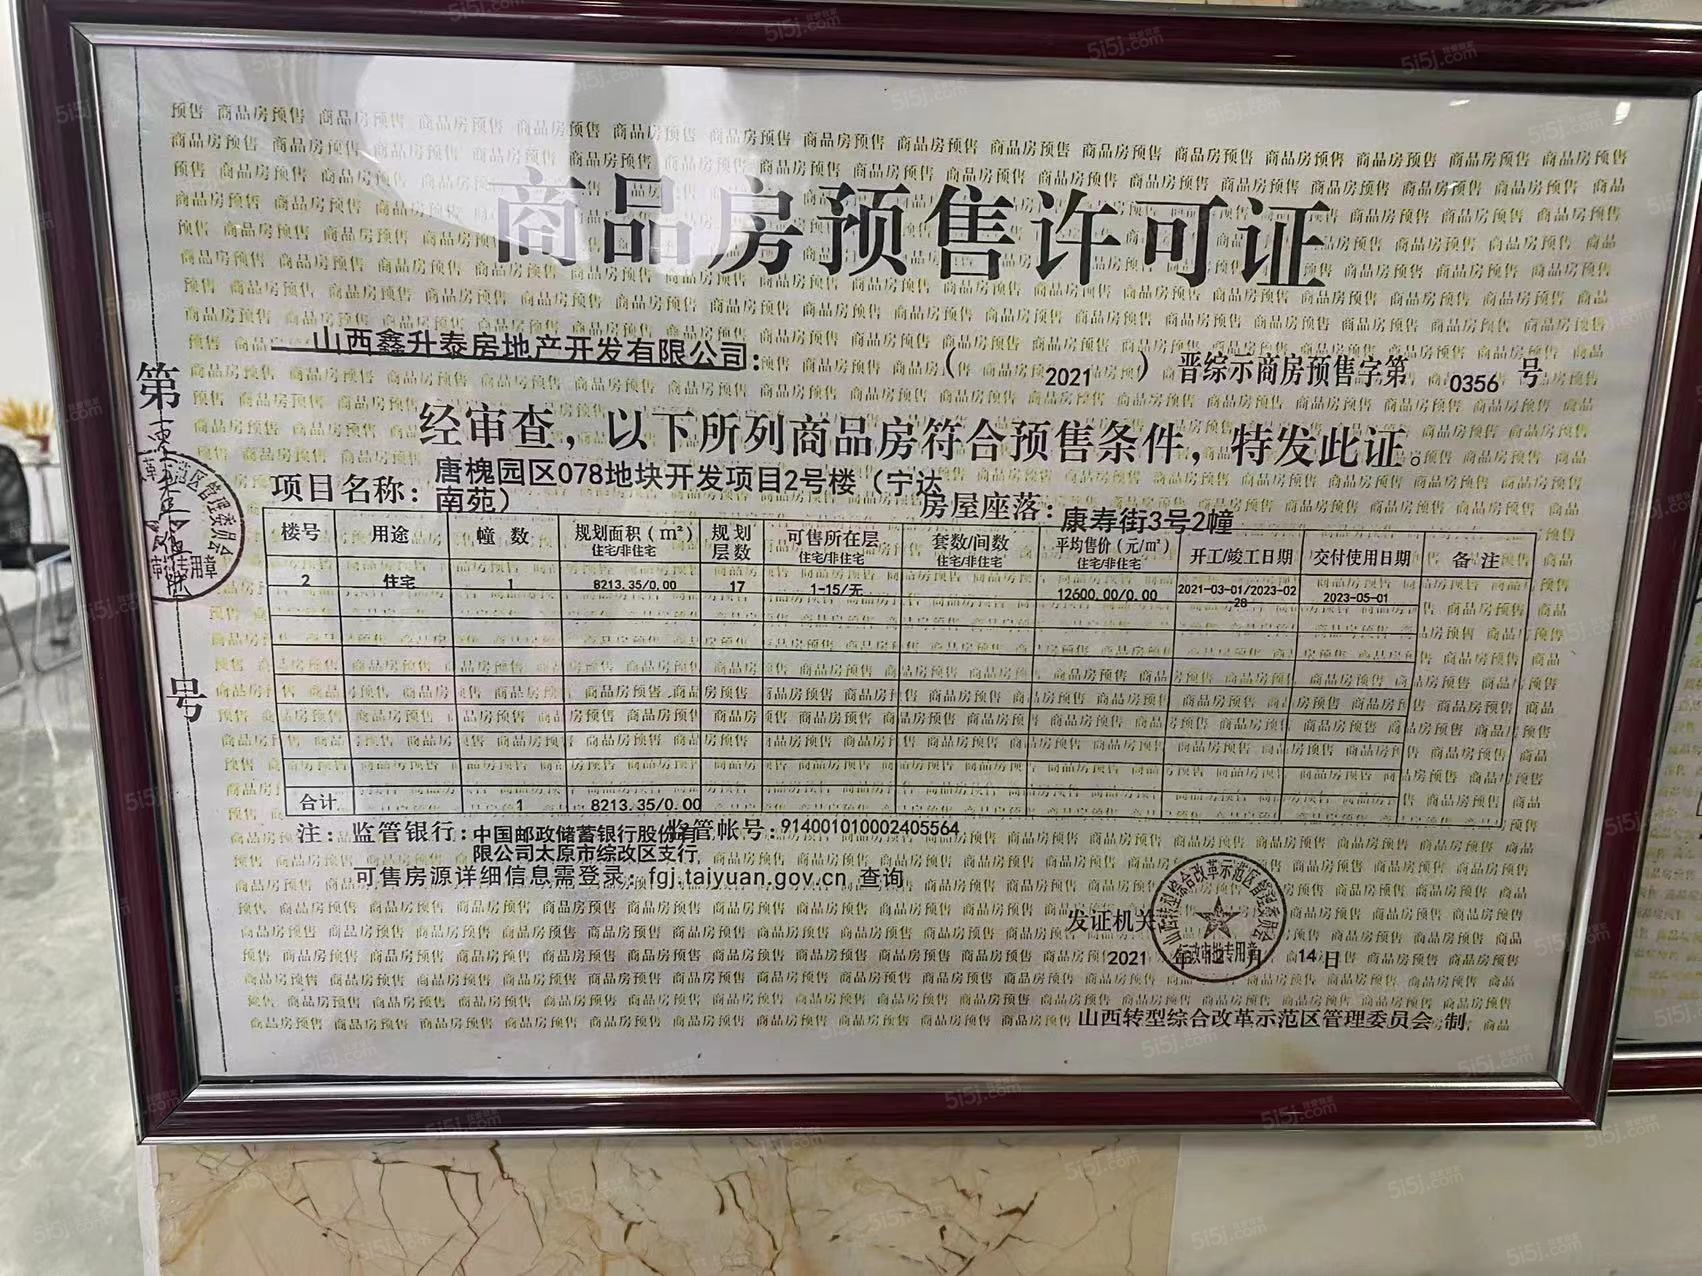 商品房预售许可证
山西鑫升泰房地产开发有限公司：（2021）晋综示商房预售字第 0356 号
经审查，以下所列商品房符合预售条件，特发此证。
项目名称：唐槐园区078地块开发项目2号楼（宁达
南苑） 房屋座落：康寿街3号2幢
楼号 用途 幢数 规划面积（m²） 住宅/非住宅 规划层数 可售所在层 住宅/非住宅 套数/间数 住宅/非住宅 平均售价（元/m²） 住宅/非住宅 开工/竣工日期 交付使用日期 备注
2 住宅 1 8213.35/0.00 17 1-15/无 12600.00/0.00 2021-03-01/2023-02-28 2023-05-01
合计 1 8213.35/0.00
注：监管银行：中国邮政储蓄银行股份有 监管帐号：914001010002405564
限公司太原市综改区支行
可售房源详细信息需登录：fgj.taiyuan.gov.cn 查询
发证机关
2021 年 月 14 日
山西转型综合改革示范区管理委员会 制
第
号
山西转型综合改革示范区管理委员会
专用章
5i5j.com